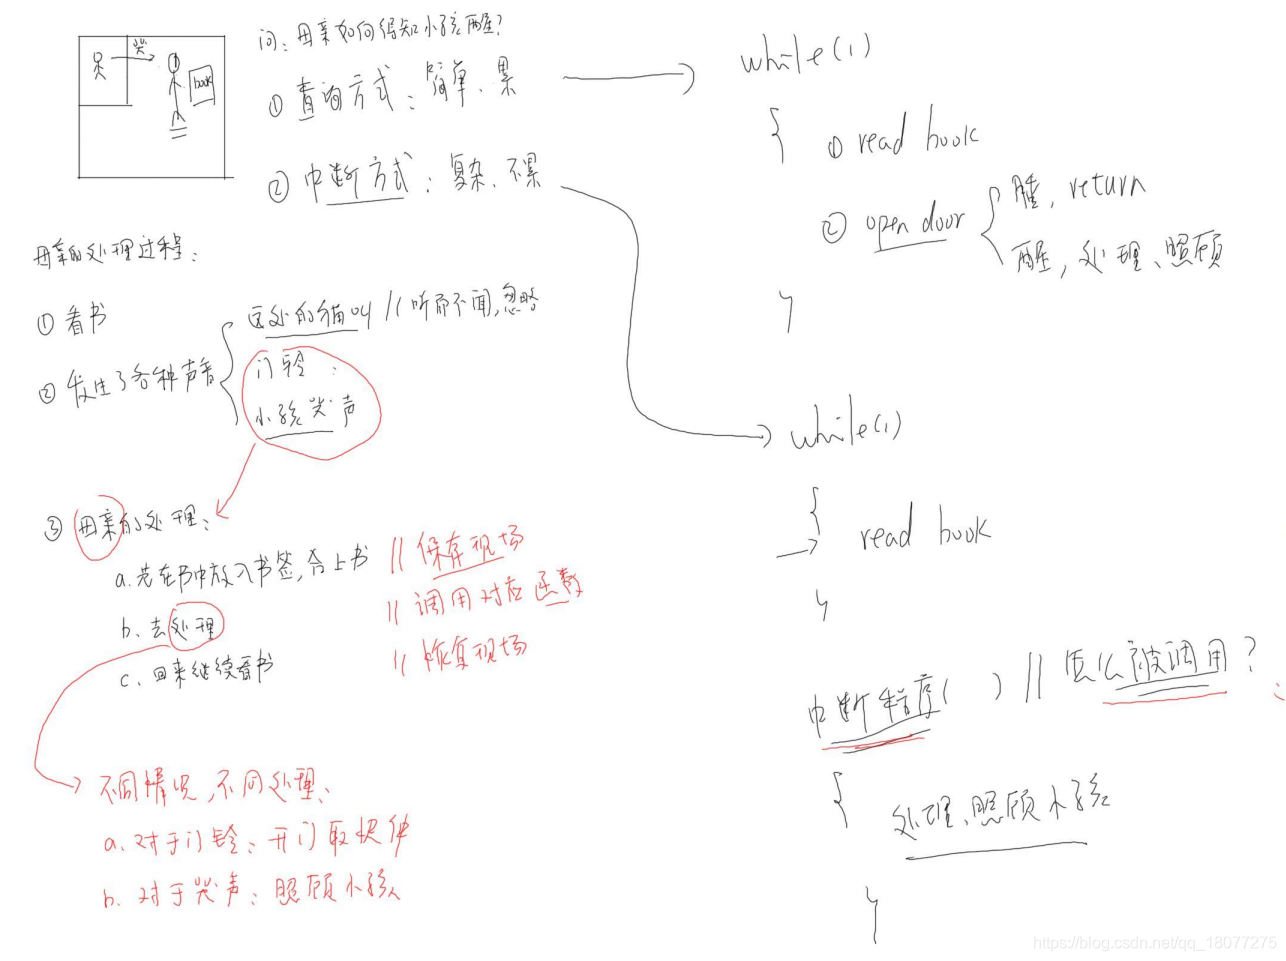 哭
book
问：母亲如何得知小孩醒？
① 查询方式：简单、累
② 中断方式：复杂、不累
while(1)
{
① read book
② open door
睡, return
醒, 处理、照顾
}
母亲的处理过程：
① 看书
② 发生了各种声音
远处的猫叫 // 听而不闻,忽略
门铃
小孩哭声
③ 母亲的处理：
a. 先在书中放入书签,合上书 // 保存现场
b. 去处理 // 调用对应函数
c. 回来继续看书 // 恢复现场
不同情况,不同处理、
a. 对于门铃：开门取快件
b. 对于哭声：照顾小孩
while(1)
{
read book
}
中断程序( ) // 怎么被调用？
{
处理、照顾小孩
}
https://blog.csdn.net/qq_18077275